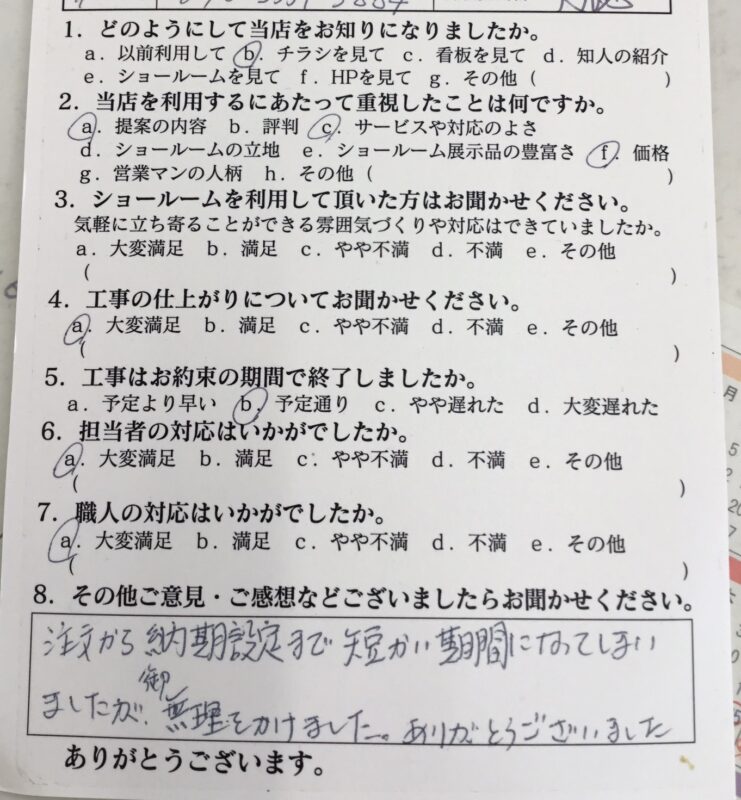 1．どのようにして当店をお知りになりましたか。
a．以前利用して b．チラシを見て c．看板を見て d．知人の紹介
e．ショールームを見て f．HPを見て g．その他（　　　　　　）
2．当店を利用するにあたって重視したことは何ですか。
a．提案の内容 b．評判 c．サービスや対応のよさ
d．ショールームの立地 e．ショールーム展示品の豊富さ f．価格
g．営業マンの人柄 h．その他（　　　　　　）
3．ショールームを利用して頂いた方はお聞かせください。
気軽に立ち寄ることができる雰囲気づくりや対応はできていましたか。
a．大変満足 b．満足 c．やや不満 d．不満 e．その他
（　　　　　　）
4．工事の仕上がりについてお聞かせください。
a．大変満足 b．満足 c．やや不満 d．不満 e．その他
（　　　　　　）
5．工事はお約束の期間で終了しましたか。
a．予定より早い b．予定通り c．やや遅れた d．大変遅れた
6．担当者の対応はいかがでしたか。
a．大変満足 b．満足 c．やや不満 d．不満 e．その他
（　　　　　　）
7．職人の対応はいかがでしたか。
a．大変満足 b．満足 c．やや不満 d．不満 e．その他
（　　　　　　）
8．その他ご意見・ご感想などございましたらお聞かせください。
注文から納期設定まで短かい期間になってしまい
ましたが、御無理をかけました。ありがとうございました
ありがとうございます。
月